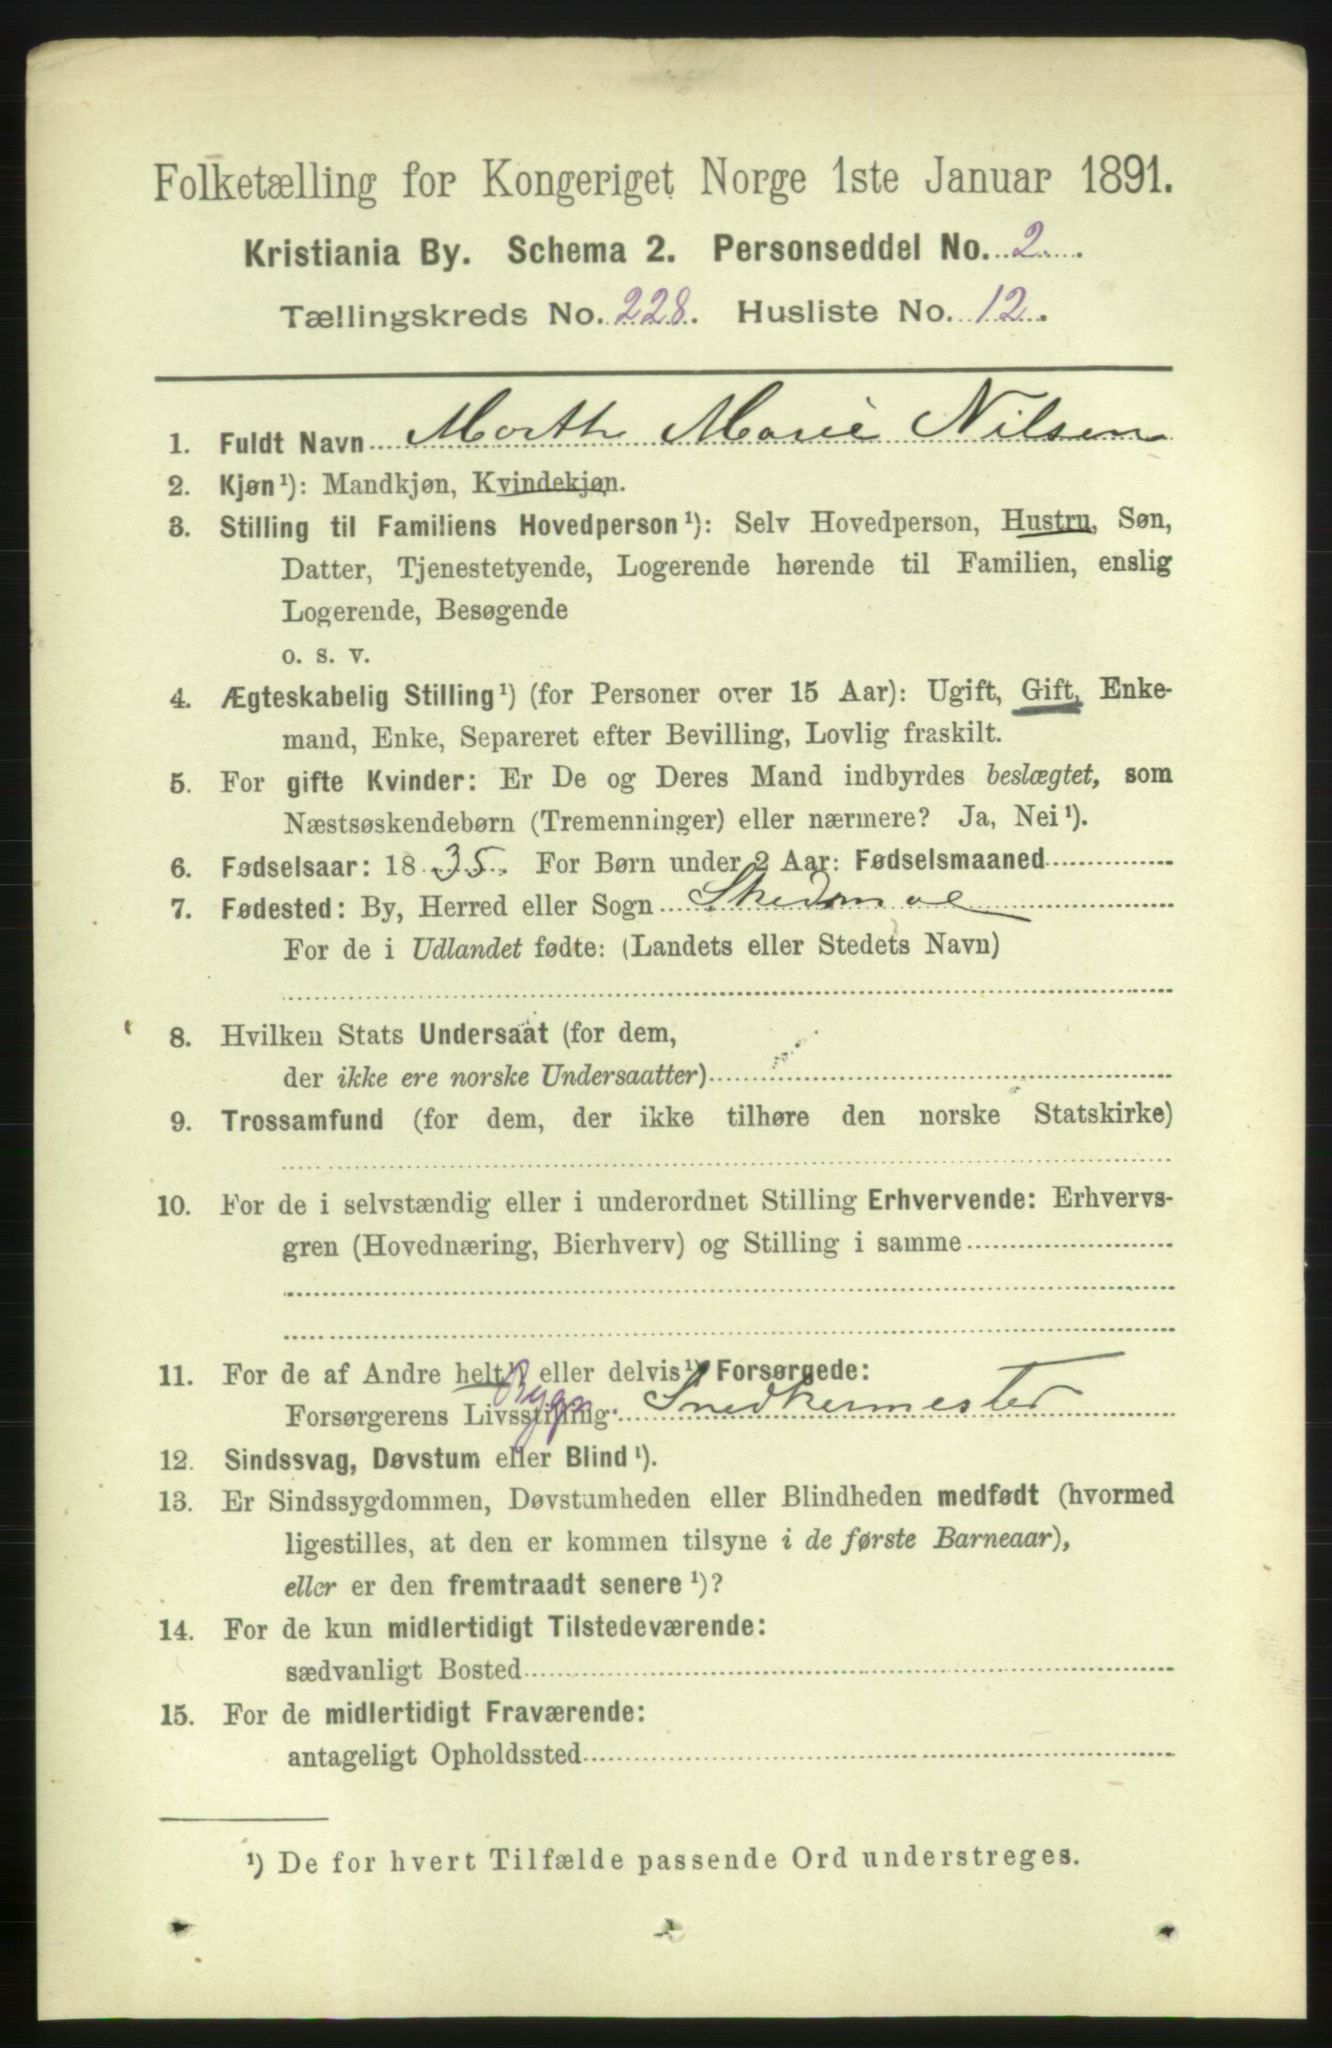 Folketælling for Kongeriget Norge 1ste Januar 1891.
Kristiania By. Schema 2. Personseddel No. 2.
Tællingskreds No. 228. Husliste No. 12.
1. Fuldt Navn Marth Marie Nilsen
2. Kjøn¹): Mandkjøn, Kvindekjøn.
3. Stilling til Familiens Hovedperson¹): Selv Hovedperson, Hustru, Søn,
Datter, Tjenestetyende, Logerende hørende til Familien, enslig
Logerende, Besøgende
o. s. v.
4. Ægteskabelig Stilling¹) (for Personer over 15 Aar): Ugift, Gift, Enke-
mand, Enke, Separeret efter Bevilling, Lovlig fraskilt.
5. For gifte Kvinder: Er De og Deres Mand indbyrdes beslægtet, som
Næstsøskendebørn (Tremenninger) eller nærmere? Ja, Nei¹).
6. Fødselsaar: 1835. For Børn under 2 Aar: Fødselsmaaned
7. Fødested: By, Herred eller Sogn Skedsmoe
For de i Udlandet fødte: (Landets eller Stedets Navn)
8. Hvilken Stats Undersaat (for dem,
der ikke ere norske Undersaatter)
9. Trossamfund (for dem, der ikke tilhøre den norske Statskirke)
10. For de i selvstændig eller i underordnet Stilling Erhvervende: Erhvervs-
gren (Hovednæring, Bierhverv) og Stilling i samme
11. For de af Andre helt¹) eller delvis¹) Forsørgede:
Bygn
Forsørgerens Livsstilling: Snedkermester
12. Sindssvag, Døvstum eller Blind¹).
13. Er Sindssygdommen, Døvstumheden eller Blindheden medfødt (hvormed
ligestilles, at den er kommen tilsyne i de første Barneaar),
eller er den fremtraadt senere¹)?
14. For de kun midlertidigt Tilstedeværende:
sædvanligt Bosted
15. For de midlertidigt Fraværende:
antageligt Opholdssted
¹) De for hvert Tilfælde passende Ord understreges.